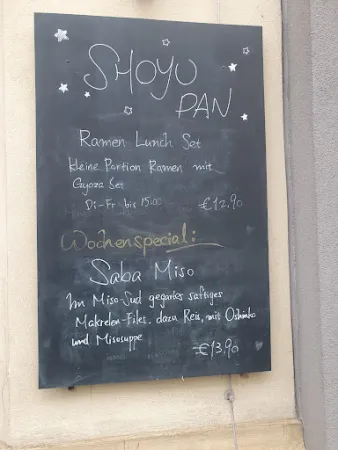 SHOYU
PAN
Ramen Lunch Set
kleine Portion Ramen mit
Gyoza Set
Di-Fr bis 15:00 €12,90
Wochenspecial:
Saba Miso
Im Miso-Sud gegartes saftiges
Makrelen-Filet. dazu Reis, mit Oshinko
und Misosuppe
€13,90